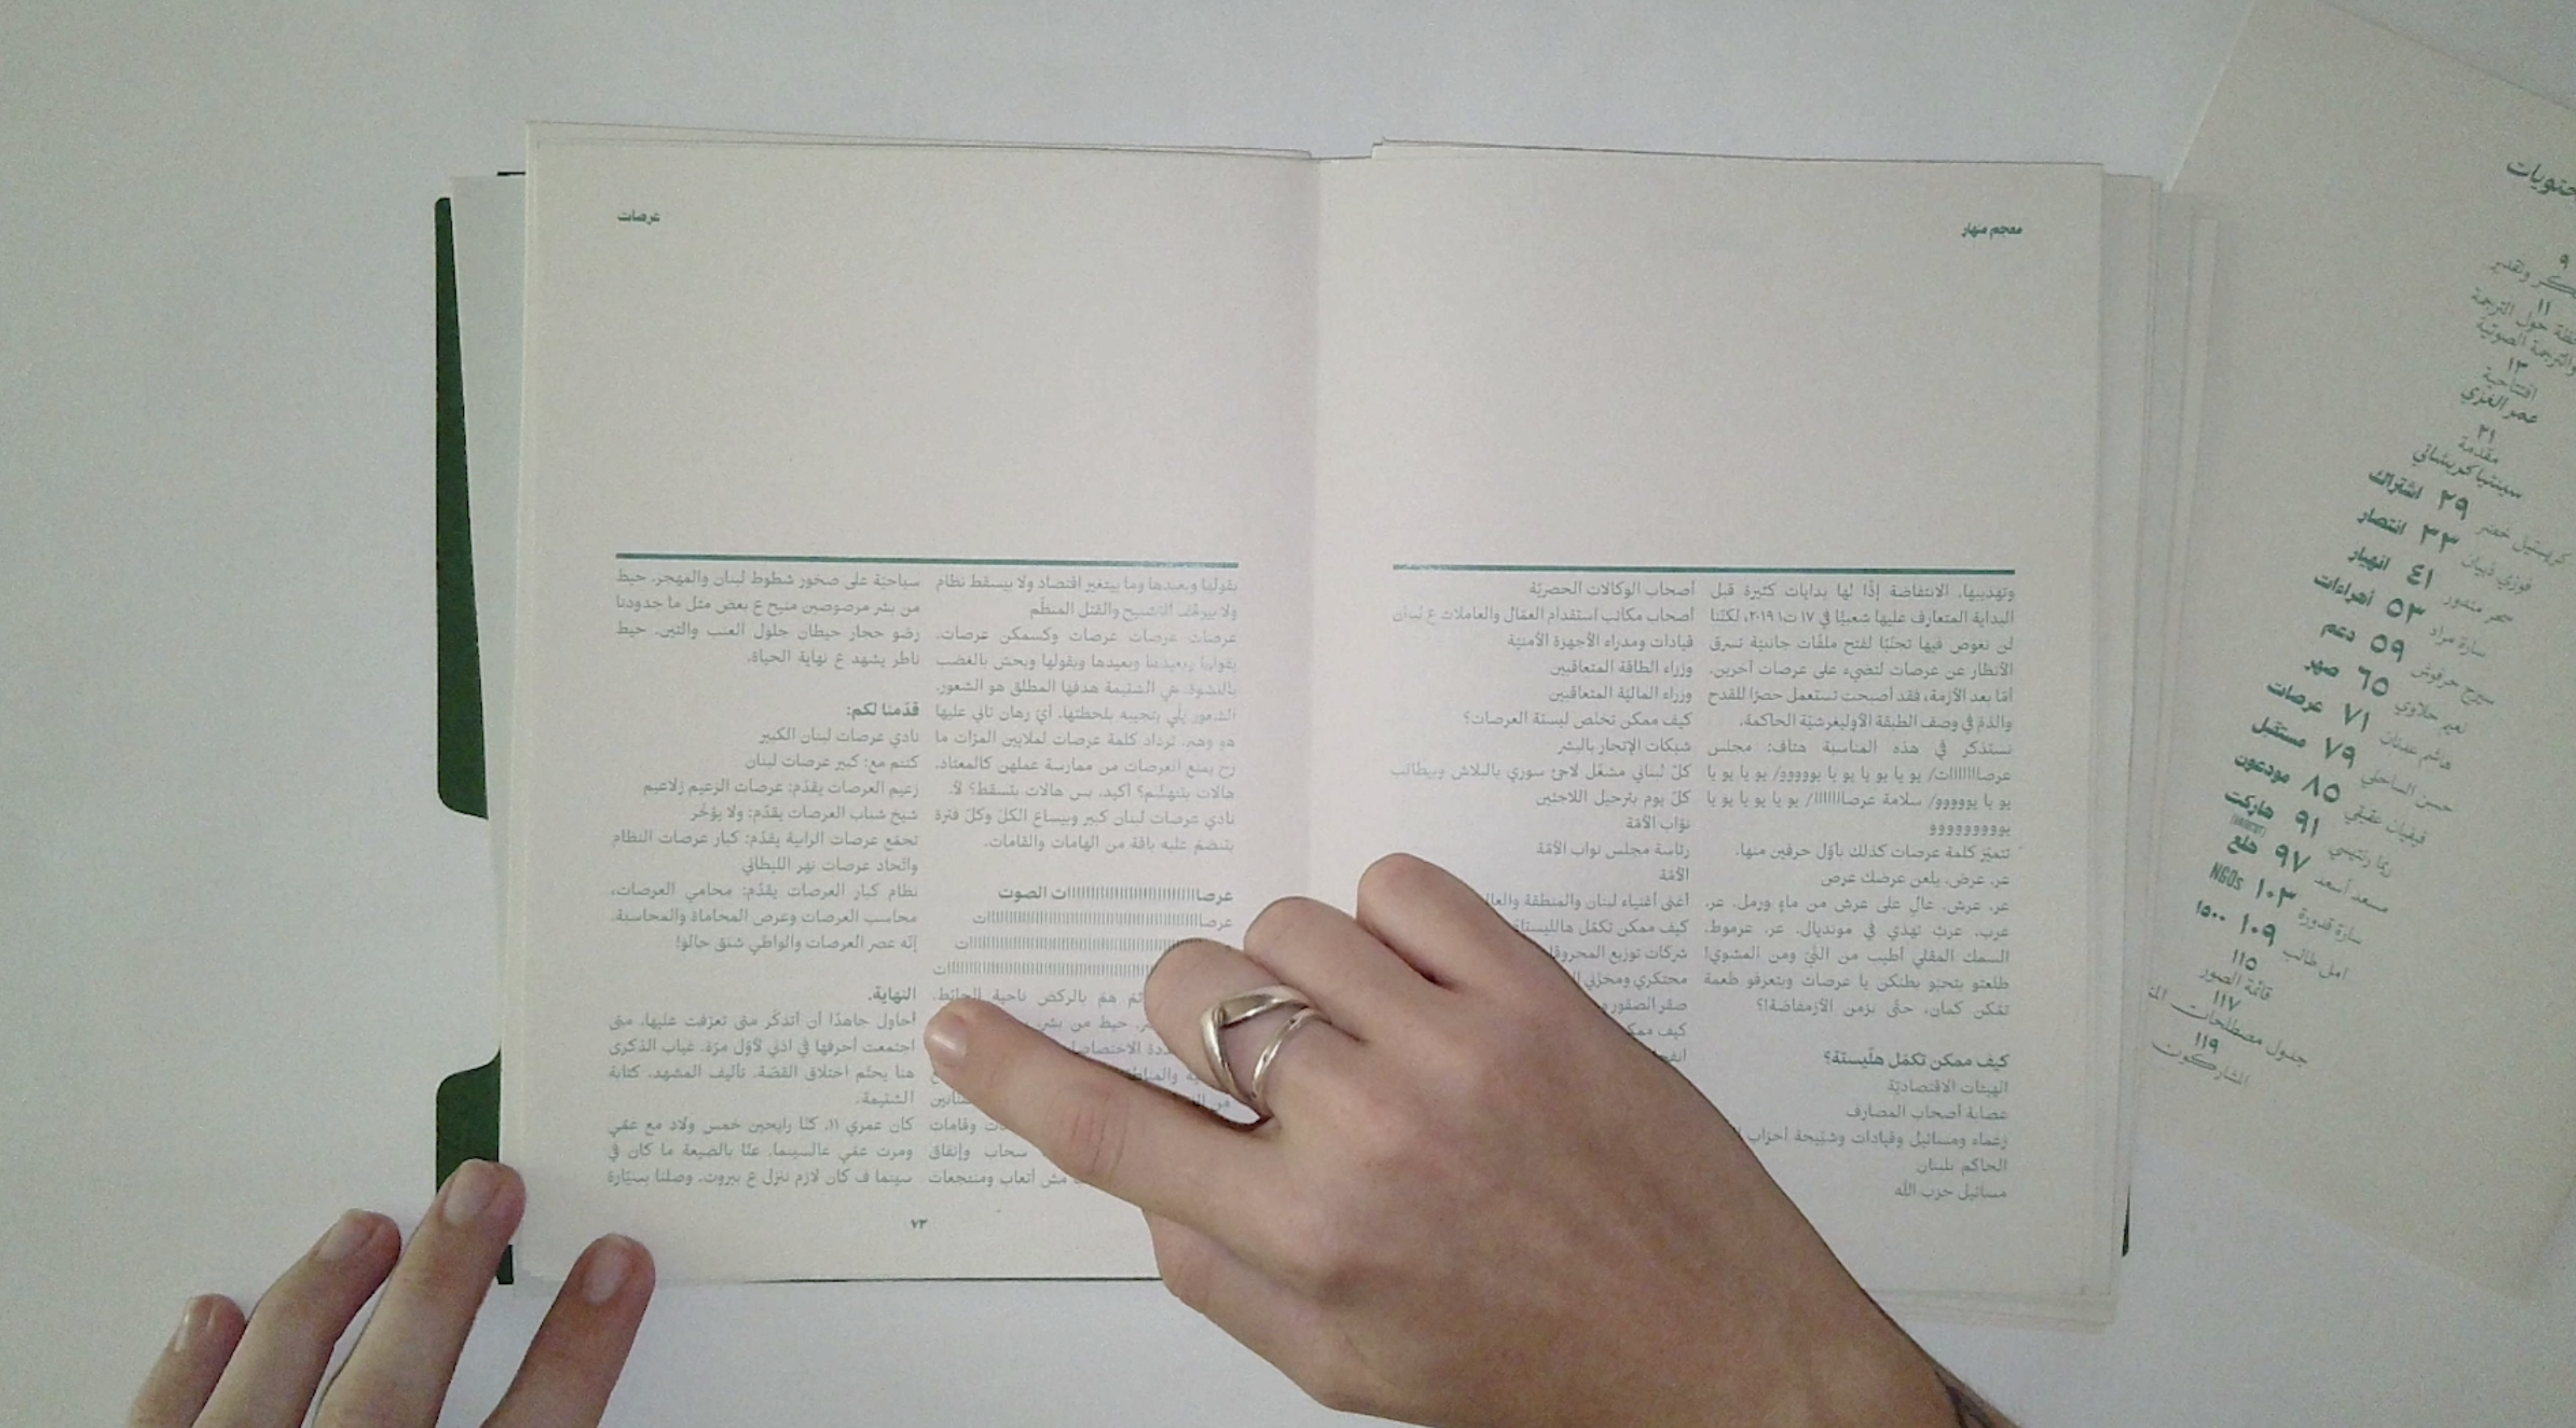 معجم منهار
وتهديبها. الانتفاضة إذًا لها بدايات كثيرة قبل
البداية المتعارف عليها شعبيًا في ١٧ ت١ ٢٠١٩، لكنّنا
لن نغوص فيها تجنّبًا لفتح ملفّات جانبيّة تسرق
الأنظار عن عرصات لتضيء على عرصات آخرين.
أمّا بعد الأزمة، فقد أصبحت تستعمل حصرًا للقدح
والذمّ في وصف الطبقة الأوليغرشيّة الحاكمة.
نستذكر في هذه المناسبة هتاف: مجلس
عرصااااااات/ يو يا يو يا يو يا يوووو/ يو يا يو يا
يو يا يوووو/ سلامة عرصااااااا/ يو يا يو يا يو يا
يوووووووووو
تتميّز كلمة عرصات كذلك بأوّل حرفين منها.
عر. عرض. يلعن عرضك عرص
عر. عرش. عالٍ على عرش من ماءٍ ورمل. عر.
عرب. عربٌ تهذي في مونديال. عر. عرموط.
السمك المقلي أطيب من النّيّ ومن المشوي!
طلعتو بتحبّو بطنكن يا عرصات وبتعرفو طعمة
تمّكن كمان، حتّى بزمن الأزمفاضة!؟
كيف ممكن تكمّل هلّيستة؟
الهيئات الاقتصاديّة
عصابة أصحاب المصارف
زعماء ومسائيل وقيادات وشبّيحة أحزاب
الحاكم بلبنان
مسائيل حزب الله
أصحاب الوكالات الحصريّة
أصحاب مكاتب استقدام العمّال والعاملات ع لبنان
قيادات ومدراء الأجهزة الأمنيّة
وزراء الطاقة المتعاقبين
وزراء الماليّة المتعاقبين
كيف ممكن تخلص ليستة العرصات؟
شبكات الإتجار بالبشر
كلّ لبناني مشغّل لاجئ سوري بالبلاش وبيطالب
كلّ يوم بترحيل اللاجئين
نوّاب الأمّة
رئاسة مجلس نواب الأمّة
الأمّة
أغنى أغنياء لبنان والمنطقة
كيف ممكن تكمّل هالليستة
شركات توزيع
محتكري ومخزّني
صقر الصقور
كيف
عرصات
بقولها وبعيدها وما بيتغير اقتصاد ولا بيسقط نظام
ولا بيوقف التشبيح والقتل المنظّم
عرصات عرصات عرصات وكسمكن عرصات.
بقولها وبعيدها وبعيدها وبقولها وبحسّ بالغضب
بالنشوة. هي الشتيمة هدفها المطلق هو الشعور.
الشعور يلّي بتجيبه بلحظتها. أيّ رهان تاني عليها
هو وهم. ترداد كلمة عرصات لملايين المرّات ما
رح يمنع العرصات من ممارسة عملهن كالمعتاد.
هالات بتنهشّم؟ أكيد. بس هالات بتسقط؟ لأ.
نادي عرصات لبنان كبير وبيساع الكلّ وكلّ فترة
بتنضمّ عليه باقة من الهامات والقامات.
عرصاااااااااااااااااااااااااااات الصوت
عرصااااااااااااااااااااااااااااااااااااات
ات
ات
ثمّ همّ بالركض ناحية الحائط.
حيط من بشر
وقامات
سحاب وإنفاق
مش أتعاب ومنتجعات
سياحيّة على صخور شطوط لبنان والمهجر. حيط
من بشر مرصوصين منيح ع بعض متل ما جدودنا
رصّو حجار حيطان جلول العنب والتين. حيط
ناطر يشهد ع نهاية الحياة.
قدّمنا لكم:
نادي عرصات لبنان الكبير
كنتم مع: كبير عرصات لبنان
زعيم العرصات يقدّم: عرصات الزعيم زلاعيم
شيخ شباب العرصات يقدّم: ولا يؤخّر
تجمّع عرصات الرابية يقدّم: كبار عرصات النظام
واتّحاد عرصات نهر الليطاني
نظام كبار العرصات يقدّم: محامي العرصات،
محاسب العرصات وعرص المحاماة والمحاسبة.
إنّه عصر العرصات والواطي شنق حالو!
النهاية.
أحاول جاهدًا أن أتذكّر متى تعرّفت عليها. متى
اجتمعت أحرفها في أذني لأوّل مرّة. غياب الذكرى
هنا يحتّم اختلاق القصّة. تأليف المشهد. كتابة
الشتيمة.
كان عمري ١١. كنّا رايحين خمس ولاد مع عمّي
ومرت عمّي عالسينما. عنّا بالضيعة ما كان في
سينما ف كان لازم ننزل ع بيروت. وصلنا بسيّارة
٧٣
٩
١١
١٣
افتتاحية
عمر الغزي
٢١
مقدّمة
سينتيا كريشاتي
٢٩ اشتراك
٣٣ انتصار
فوزي ذبيان
٤١ انهيار
سحر مندور
٥٣ أهراءات
سارة مراد
٥٩ دعم
سيرج حرفوش
٦٥ صهر
نعيم حلاوي
٧١ عرصات
هاشم عدنان
٧٩ مستقبل
حسن الساحلي
٨٥ مودعون
فيفيان عقيقي
٩١ هاركت
(HAIRCUT)
ريما رنتيسي
٩٧ هلع
مسعد أسعد
١٠٣ NGOs
سارة قدورة
١٠٩ ١٥٠٠
امل طالب
١١٥
قائمة الصور
١١٧
جدول مصطلحات
١١٩
المشاركون